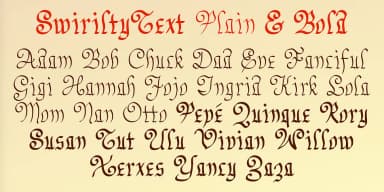 SwirlityText Plain & Bold
Adam Bob Chuck Dad Eve Fanciful
Gigi Hannah Jojo Ingrid Kirk Lola
Mom Nan Otto Pepé Quinque Rory
Susan Tut Ulu Vivian Willow
Xerxes Yancy Zaza